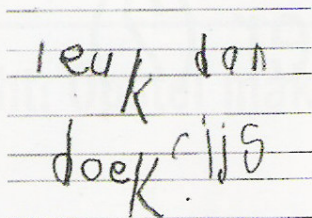 leuk dan
doek ijs